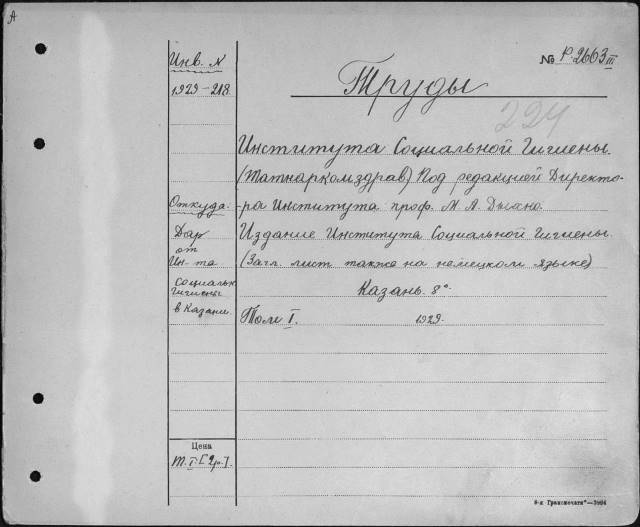 А
Инв. N
1929-218
№ Р-2663 III
Труды
224
Института Социальной Гигиены.
(Татнаркомздрав) Под редакцией Директо-
Откуда:
-ра Института проф. М. А.
Дар
от
Ин-та
социальн
гигиены
в Казани.
Издание Института Социальной Гигиены.
(Загл. лист также на немецком языке)
Казань. 8°.
Том I. 1929.
Цена
т. I. [2р.].